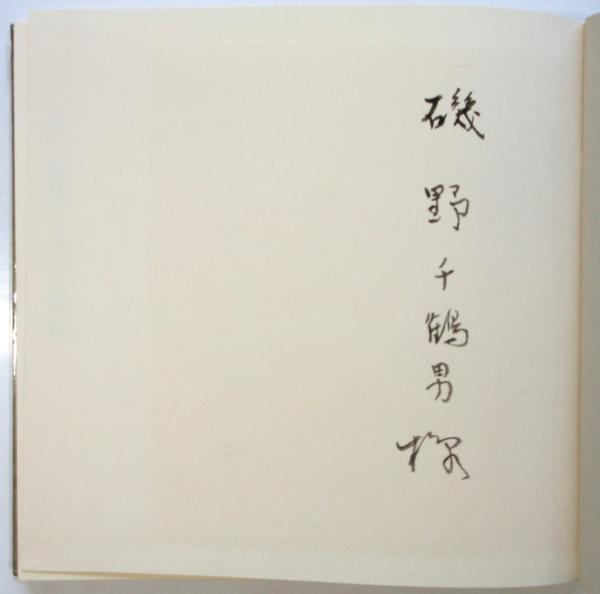 磯野千鶴男様